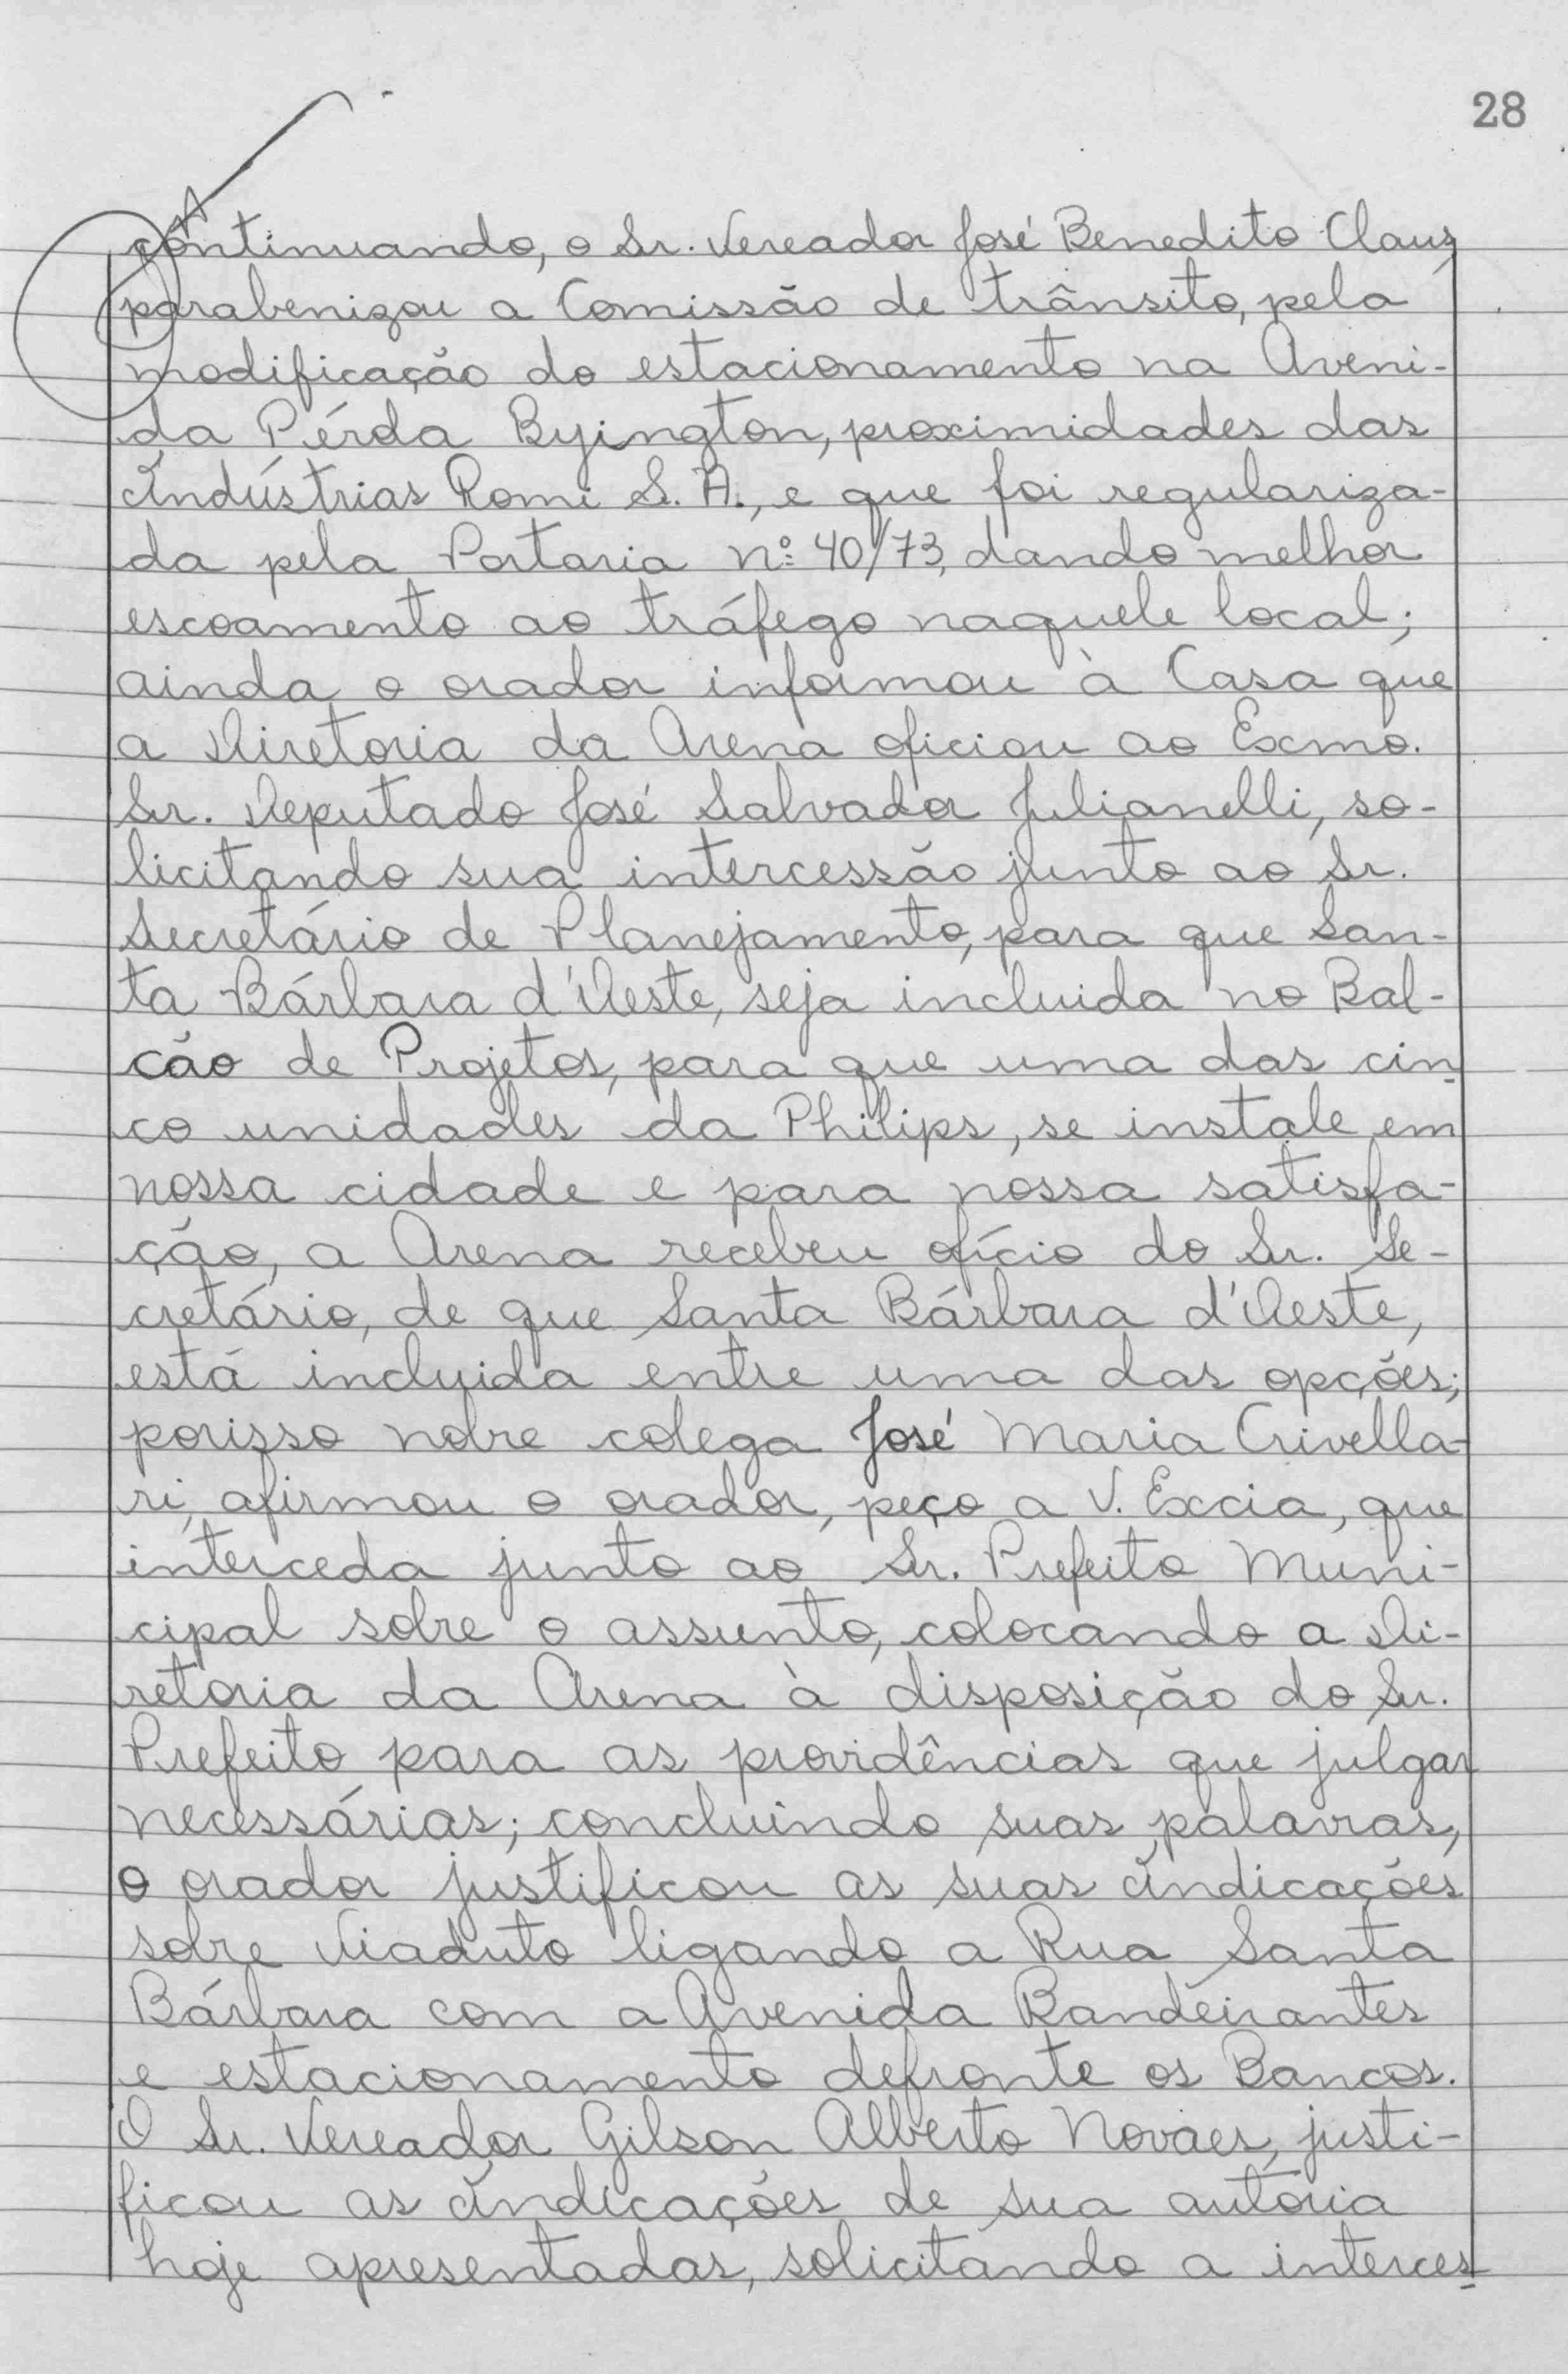 28
continuando, o Sr. Vereador José Benedito Claus,
parabenizou a Comissão de trânsito, pela
modificação do estacionamento na Aveni-
da Pérda Byington, proximidades das
Indústrias Romi S. A., e que foi regulariza-
da pela Portaria nº 40/73, dando melhor
escoamento ao tráfego naquele local;
ainda o orador informou à Casa que
a Diretoria da Arena oficiou ao Exmo.
Sr. Deputado José Salvador Julianelli, so-
licitando sua intercessão junto ao Sr.
Secretário de Planejamento, para que San-
ta Bárbara d'Oeste, seja incluida no Bal-
cão de Projetos, para que uma das cin
co unidades da Philips, se instale em
nossa cidade e para nossa satisfa-
ção, a Arena recebeu ofício do Sr. Se-
cretário, de que Santa Bárbara d'Oeste,
está incluida entre uma das opções;
porisso nobre colega José Maria Crivella-
ri, afirmou o orador, peço a V. Excia, que
interceda junto ao Sr. Prefeito Muni-
cipal sobre o assunto, colocando a Di-
retoria da Arena à disposição do Sr.
Prefeito para as providências que julgar
necessárias; concluindo suas palavras,
o orador justificou as suas Indicações
sobre Viaduto ligando a Rua Santa
Bárbara com a Avenida Bandeirantes
e estacionamento defronte os Bancos.
O Sr. Vereador Gilson Alberto Novaes, justi-
ficou as Indicações de sua autoria
hoje apresentadas, solicitando a interces